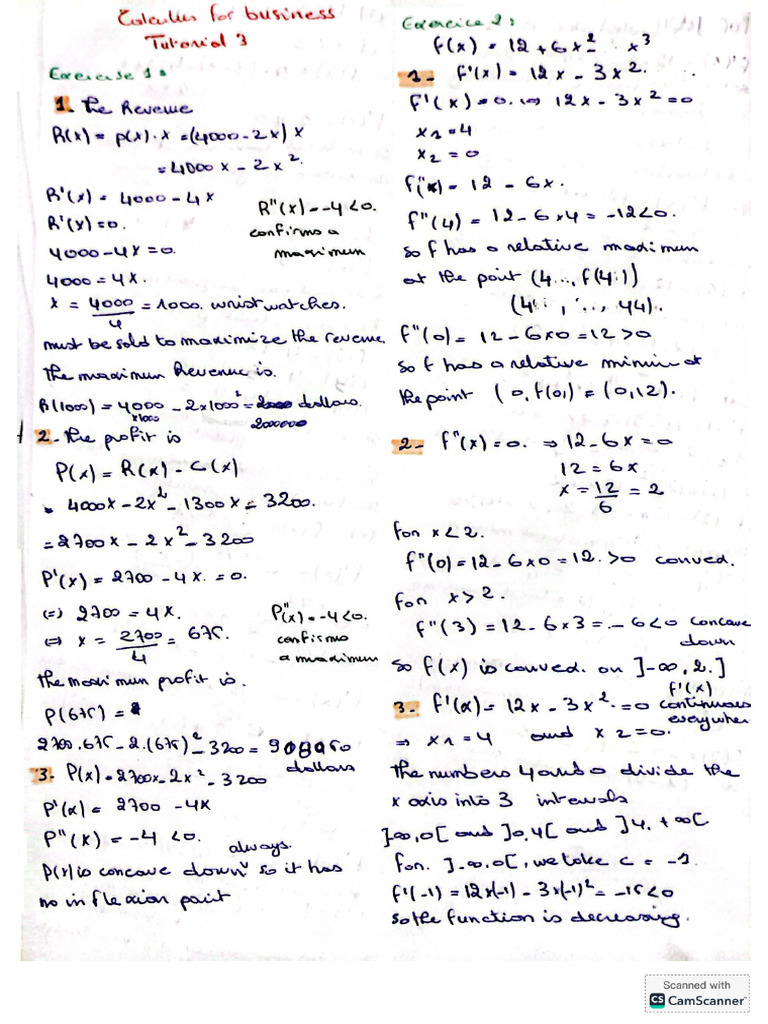 Calculus for business
Tutorial 3
Exercise 1:
1. the Revenue
R(x) = p(x)·x = (4000-2x) x
= 4000x - 2x².
R'(x) = 4000 - 4x
R'(x)=0.
R"(x) = -4<0.
confirms a
maximum
4000-4x=0.
4000=4x.
x = 4000/4 = 1000. wristwatches.
must be sold to maximize the revenue.
the maximum Revenue is.
R(1000) = 4000 x1000 - 2x1000² = 2000000 dollars.
2-the profit is
P(x) = R(x) - C(x)
= 4000x-2x² - 1300x = 3200.
= 2700x - 2x² - 3200
P'(x) = 2700 - 4x. = 0.
(=) 2700 = 4x.
⇔ x = 2700/4 = 675.
P"(x) = -4<0.
confirms
a maximum
the maximum profit is.
P(675) =
2700.675 - 2.(675)² - 3200 = 908050
dollars
3- P(x) = 2700x - 2x² - 3200
P'(x) = 2700 - 4x
P"(x) = -4 <0.
always.
P(x) is concave down so it has
no inflexion point
Exercice 2:
f(x) = 12 + 6x² - x³
1- f'(x) = 12x - 3x².
f'(x)=0. ⇔ 12x - 3x² = 0
x1 = 4
x2 = 0
f"(x) = 12 - 6x.
f"(4) = 12-6x4 = -12<0.
so f has a relative maximum
at the point (4, f(4))
(4, 44).
f"(0) = 12-6x0 = 12 >0
so f has a relative minim at
the point (0, f(0)) = (0,12).
2- f"(x) = 0. ⇒ 12-6x = 0
12 = 6x
x = 12/6 = 2
for x<2.
f"(0) = 12-6x0 = 12. >0 conved.
for x>2.
f"(3) = 12-6x3 = -6<0 concave
down
so f(x) is conved. on ]-∞, 2.]
3- f'(x) = 12x - 3x² = 0
f'(x)
continuous
everywher
⇒ x1 = 4 and x2 = 0.
the numbers 4 and 0 divide the
x axis into 3 intervals
]-∞,0[ and ]0,4[ and ]4, +∞[
for. ]-∞,0[, we take c = -1
f'(-1) = 12x(-1) - 3x(-1)² = -15<0
so the function is decreasing.
Scanned with
CS CamScanner